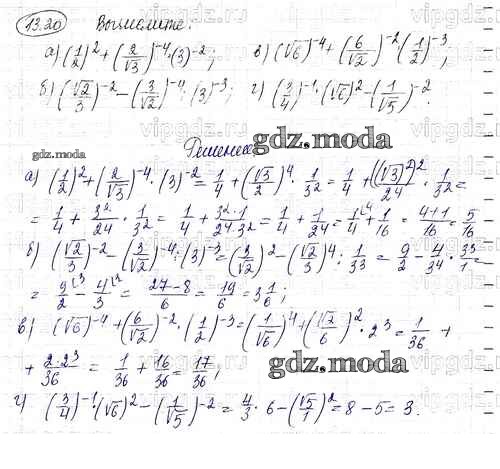 13.20 Вычислите:
а) (1/2)² + (2/√3)⁻⁴·(3)⁻²; в) (√6)⁻⁴ + (6/√2)⁻²·(1/2)⁻³;
б) (√2/3)⁻² − (3/√2)⁻⁴ : (3)⁻³; г) (3/4)⁻¹·(√6)² − (1/√5)⁻².
gdz.moda
Решение:
gdz.moda
а) (1/2)² + (2/√3)⁻⁴·(3)⁻² = 1/4 + (√3/2)⁴·1/3² = 1/4 + ((√3)²)²/2⁴·1/3² =
= 1/4 + 3²/2⁴·1/3² = 1/4 + 3²·1/2⁴·3² = 1/4 + 1/2⁴ = 1/4 + 1/16 = 4+1/16 = 5/16
б) (√2/3)⁻² − (3/√2)⁻⁴ : (3)⁻³ = (3/√2)² − (√2/3)⁴ : 1/3³ = 9/2 − 4/3⁴·3³/1 =
= 9/2 − 4/3 = 27−8/6 = 19/6 = 3 1/6;
gdz.moda
в) (√6)⁻⁴ + (6/√2)⁻²·(1/2)⁻³ = (1/√6)⁴ + (√2/6)²·2³ = 1/36 +
+ 2·2³/36 = 1/36 + 16/36 = 17/36;
gdz.moda
г) (3/4)⁻¹·(√6)² − (1/√5)⁻² = 4/3·6 − (√5/1)² = 8 − 5 = 3.